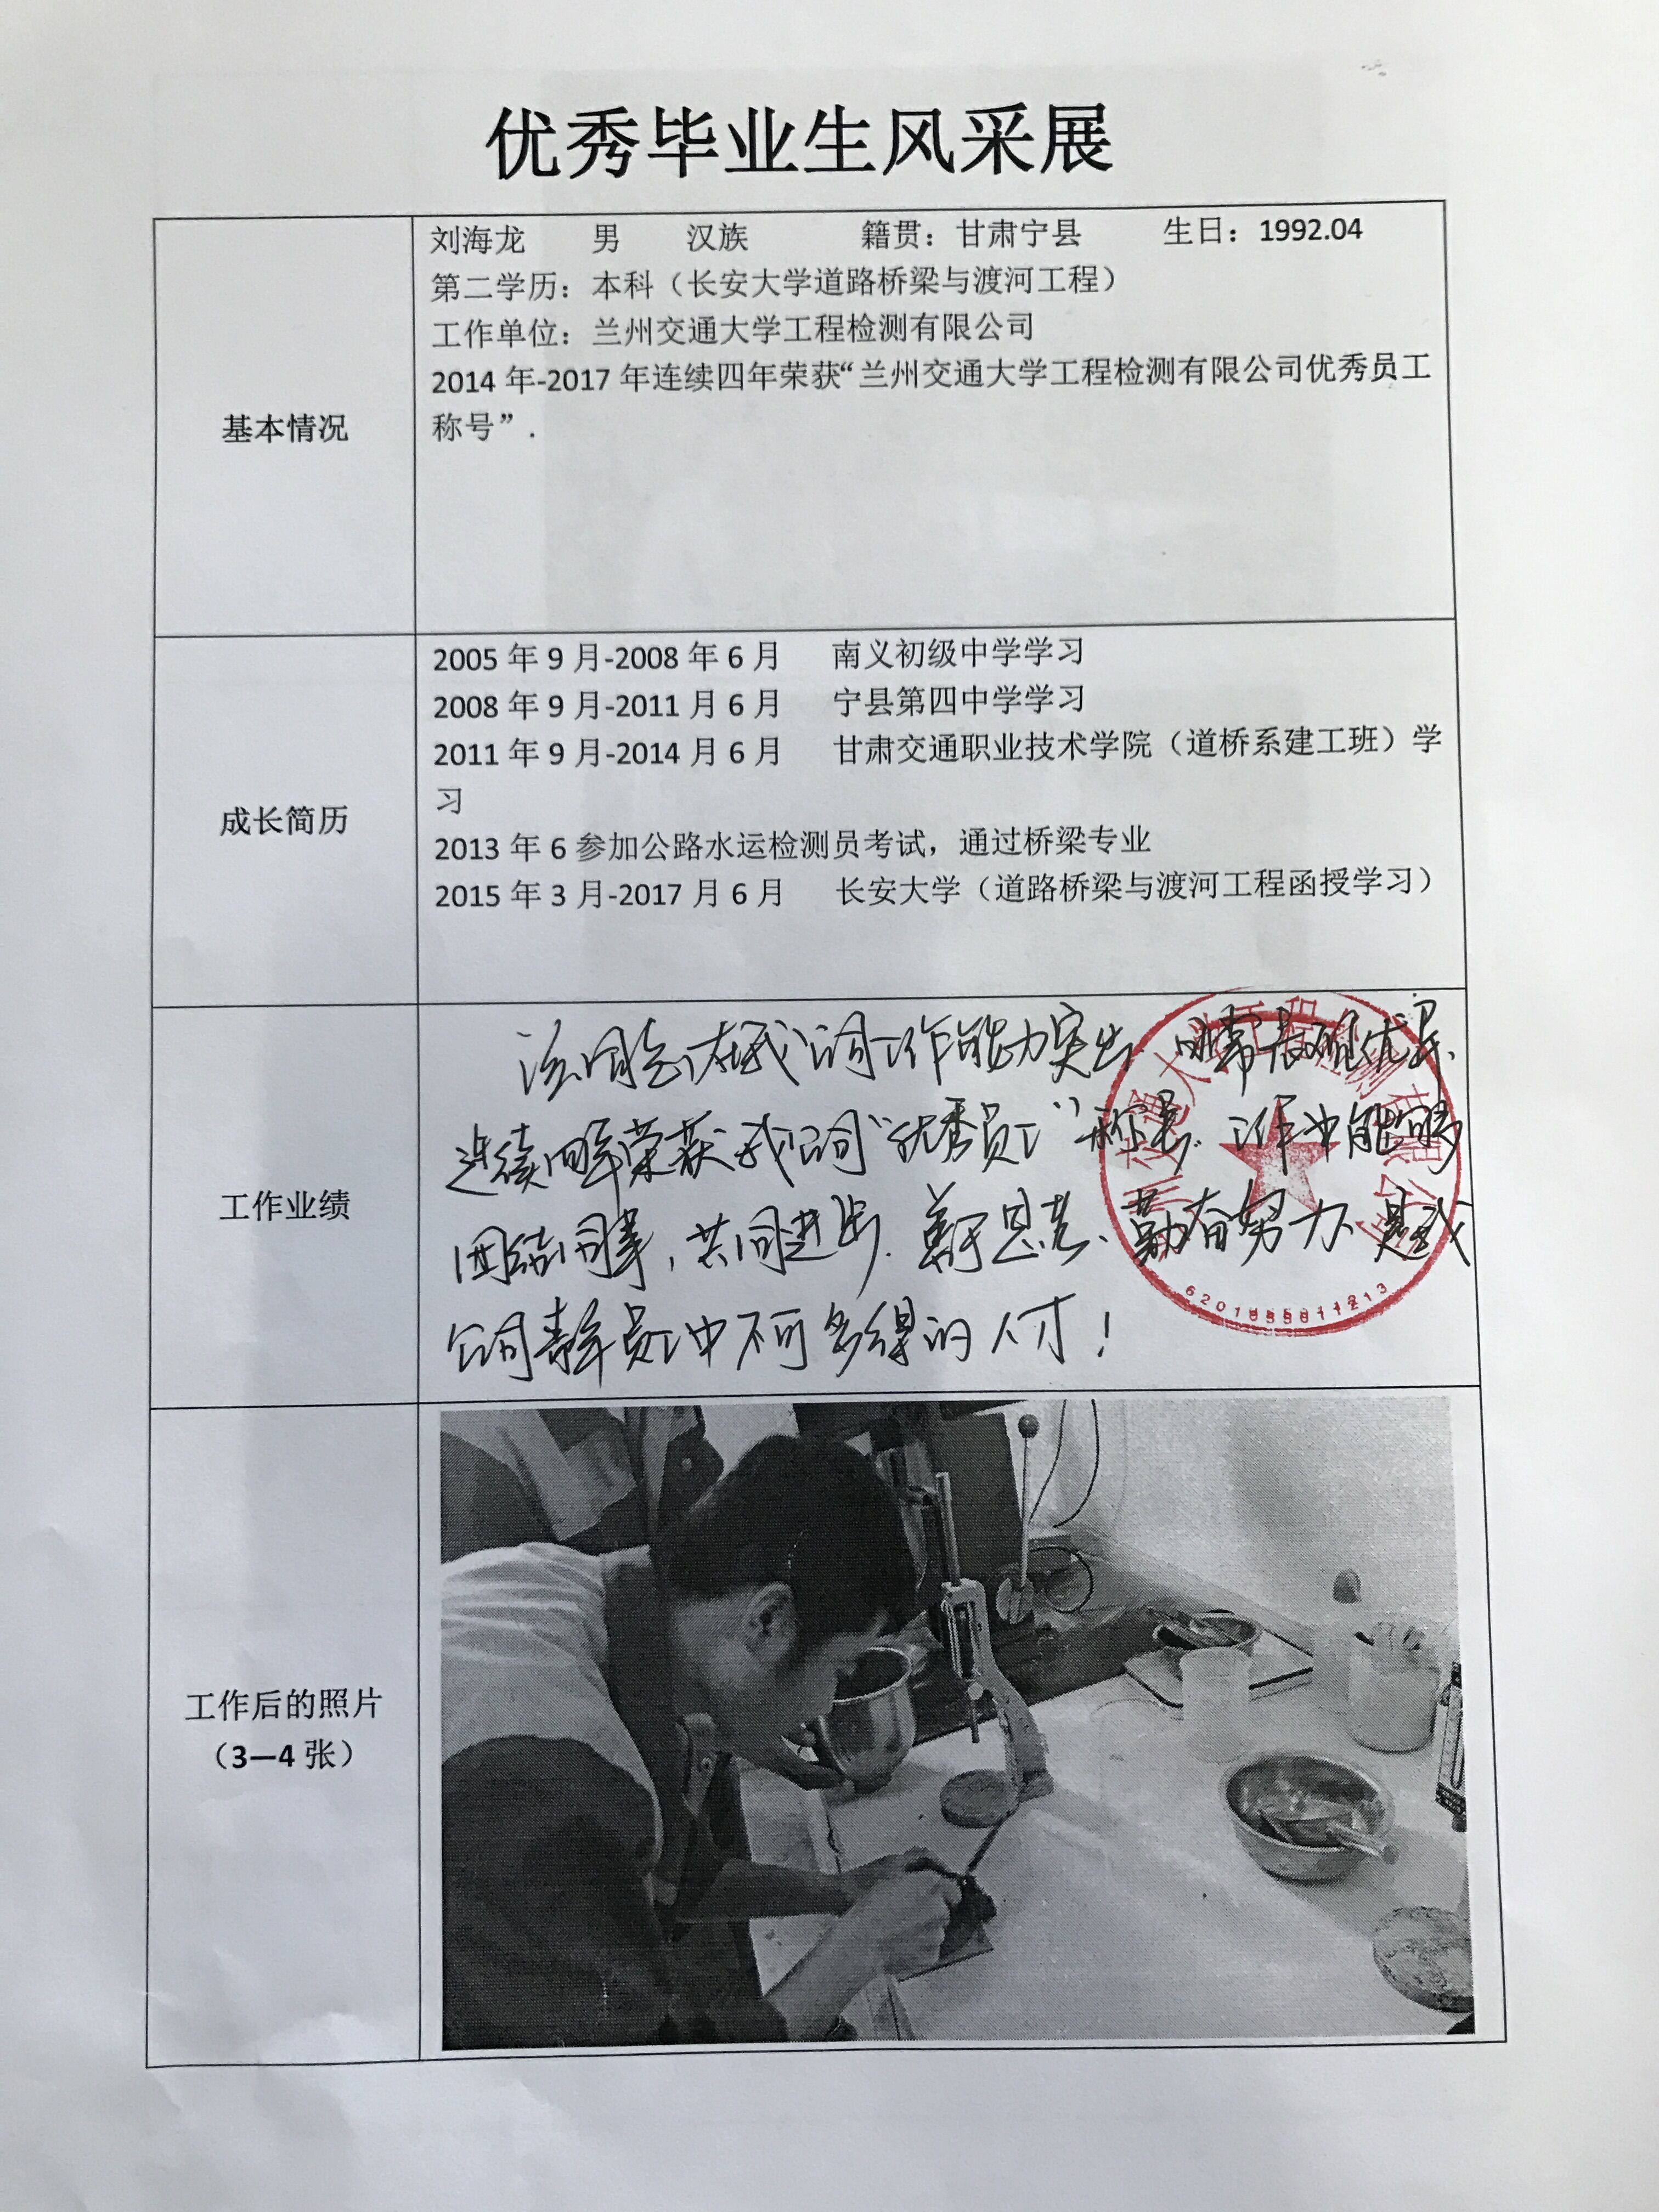 优秀毕业生风采展
基本情况
刘海龙 男 汉族 籍贯：甘肃宁县 生日：1992.04
第二学历：本科（长安大学道路桥梁与渡河工程）
工作单位：兰州交通大学工程检测有限公司
2014 年-2017 年连续四年荣获“兰州交通大学工程检测有限公司优秀员工
称号”.
成长简历
2005 年 9 月-2008 年 6 月 南义初级中学学习
2008 年 9 月-2011 月 6 月 宁县第四中学学习
2011 年 9 月-2014 月 6 月 甘肃交通职业技术学院（道桥系建工班）学
习
2013 年 6 参加公路水运检测员考试，通过桥梁专业
2015 年 3 月-2017 月 6 月 长安大学（道路桥梁与渡河工程函授学习）
工作业绩
该同志在我公司工作能力突出.
连续四年荣获我公司“优秀员工”称号. 工作中能够
团结同事，共同进步. 善于思考、勤奋努力. 是我
公司青年员工中不可多得的人才！
工作后的照片
（3—4 张）